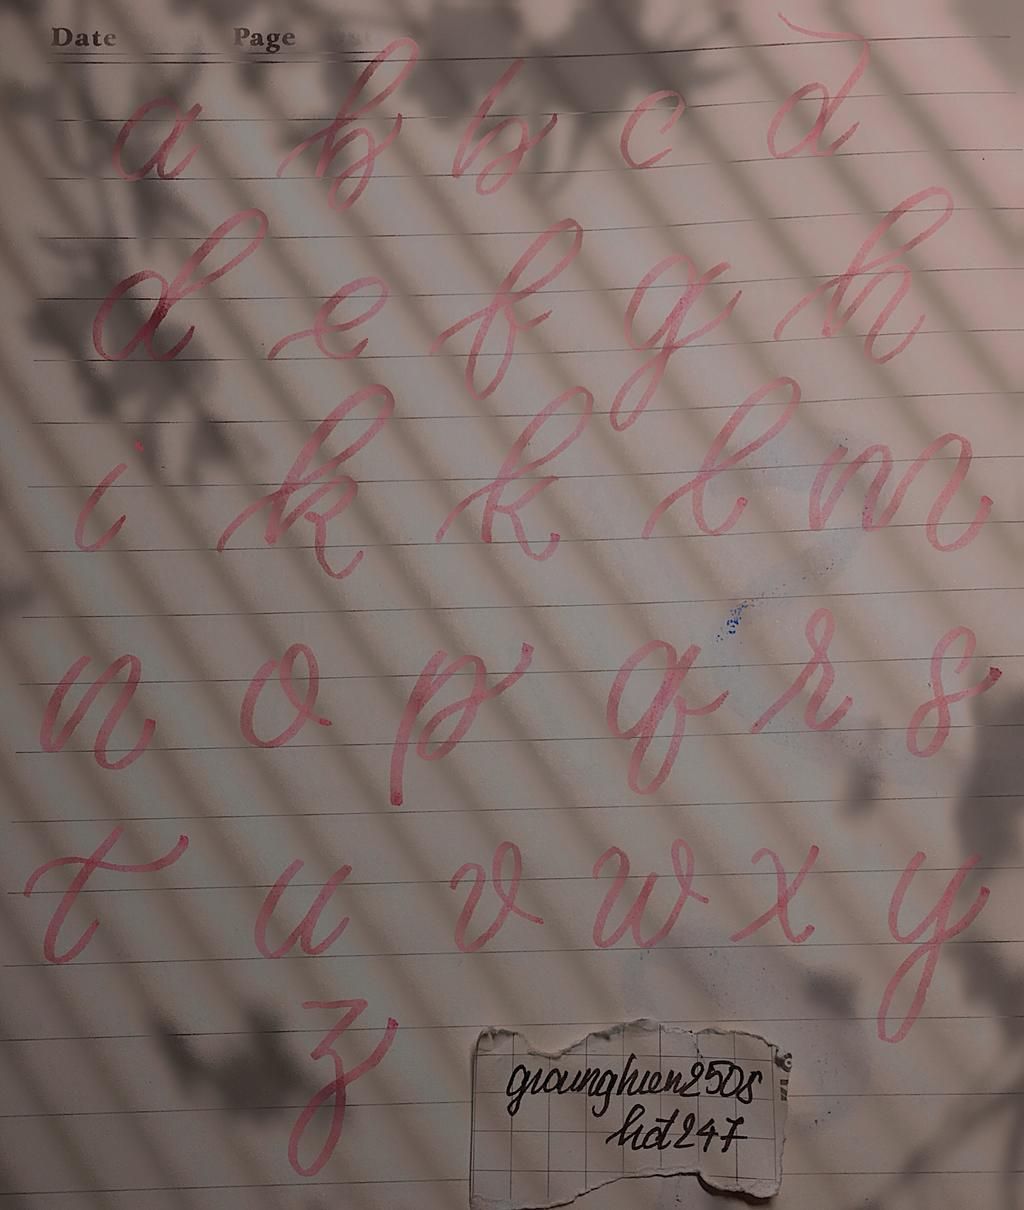 Date Page
a b b c d
d e f g h
i k k l m
n o p q r s
t u v w x y
z
gianghien250s
hot247